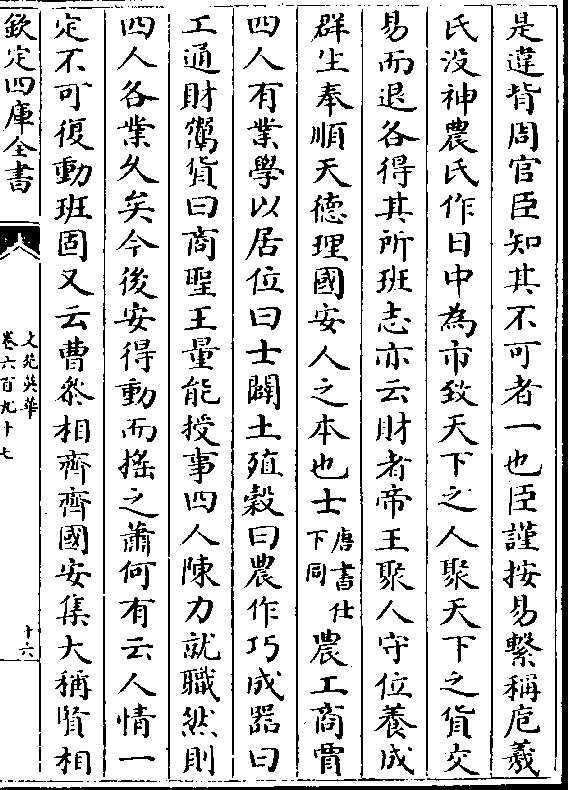 是違背周官臣知其不可者一也臣謹按易繫稱庖羲
氏没神農氏作日中為市致天下之人聚天下之貨交
易而退各得其所班志亦云財者帝王聚人守位養成
群生奉順天德理國安人之本也士唐書仕下同農工商賈
四人有業學以居位曰士闢土殖穀曰農作巧成器曰
工通財鬻貨曰商聖王量能授事四人陳力就職然則
四人各業久矣今後安得動而搖之蕭何有云人情一
定不可復動班固又云曹參相齊齊國安集大稱賢相
欽定四庫全書
文苑英華
卷六百九十七
十六